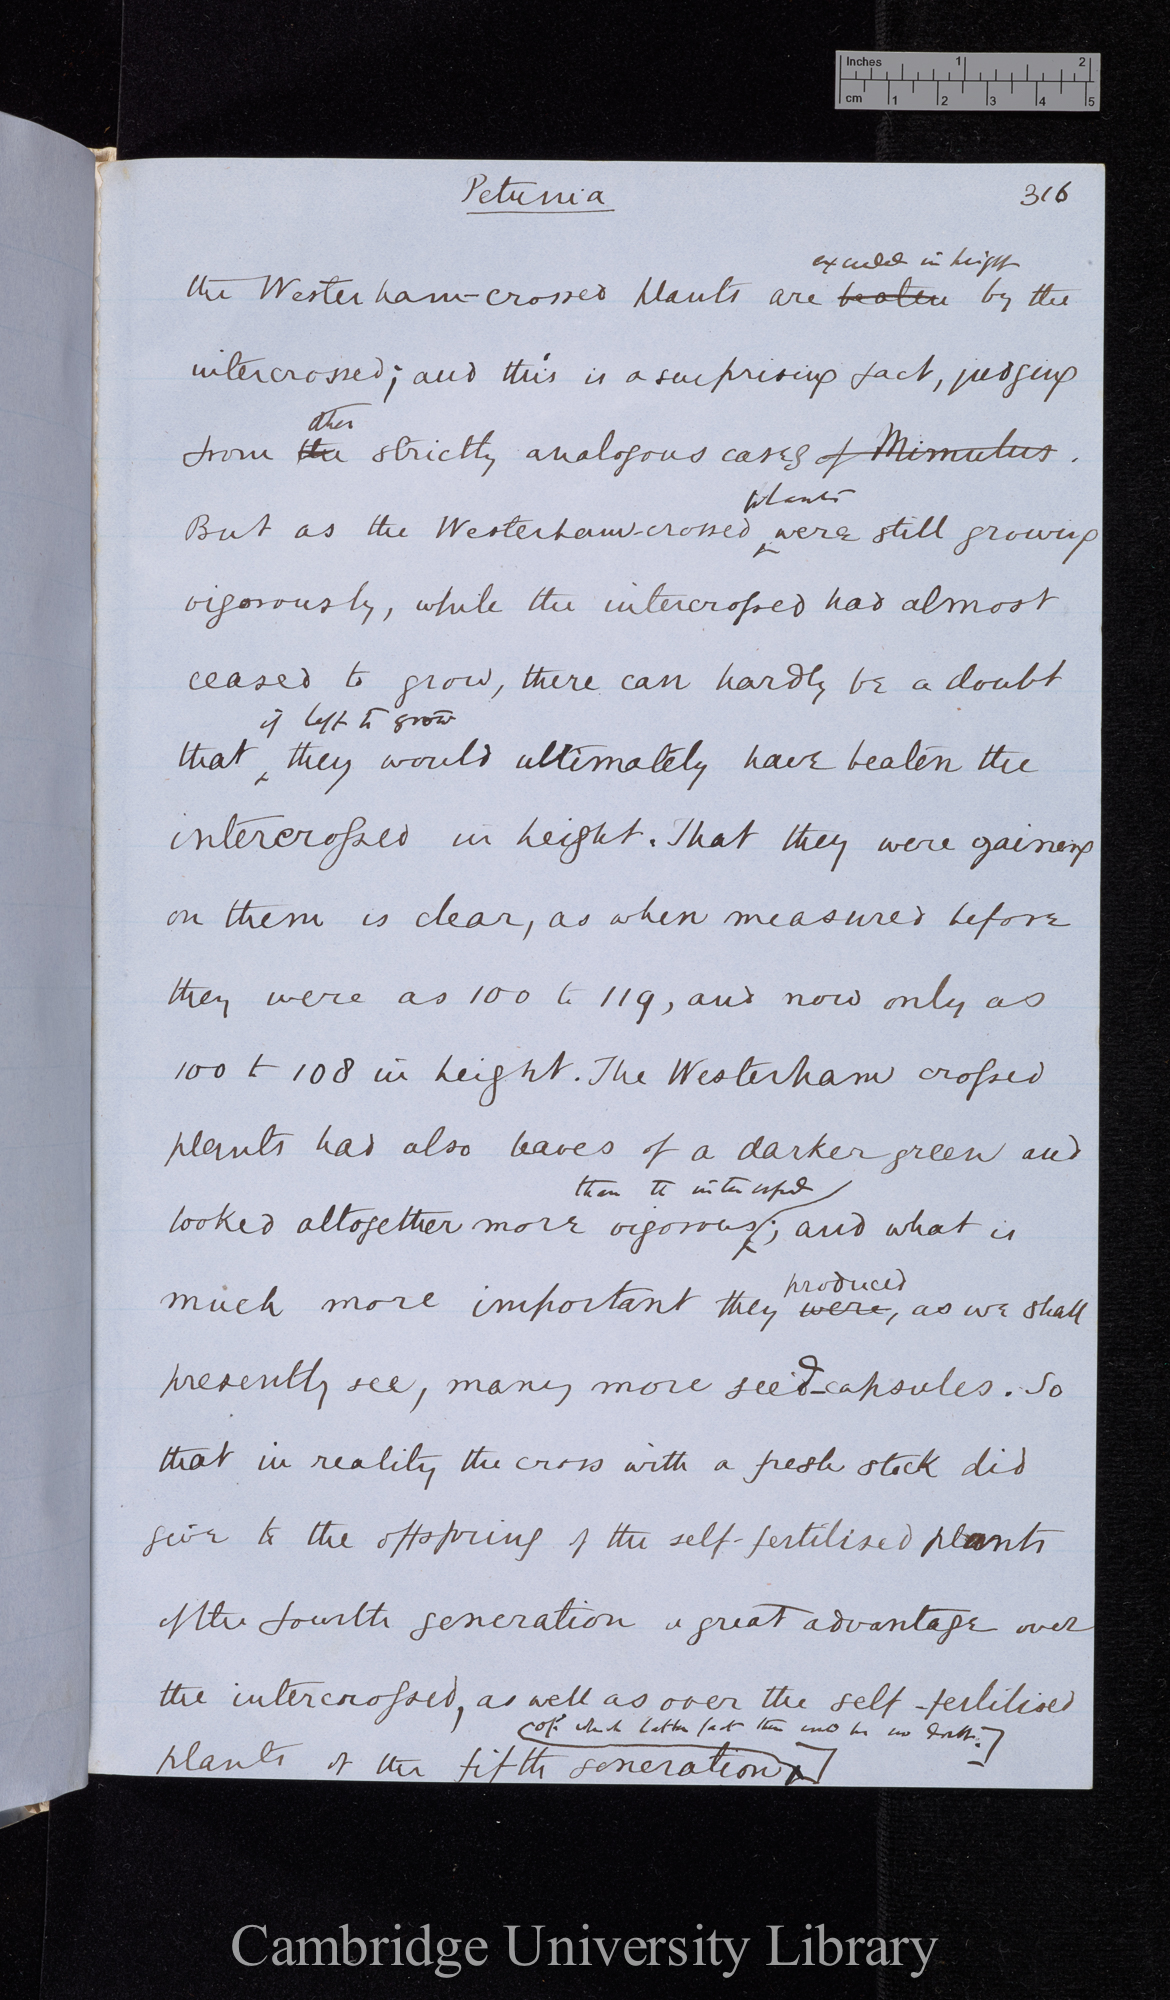 Inches 1 2
cm 1 2 3 4 5
Petunia 316
exceeded in height
the Westerham-crossed plants are beaten by the
intercrossed; and this is a surprising fact, judging
other
from the strictly analogous cases of Mimulus.
plants
But as the Westerham-crossed were still growing
vigorously, while the intercrossed had almost
ceased to grow, there can hardly be a doubt
if left to grow
that they would ultimately have beaten the
intercrossed in height. That they were gaining
on them is clear, as when measured before
they were as 100 to 119, and now only as
100 to 108 in height. The Westerham crossed
plants had also leaves of a darker green and
than the intercrossed
looked altogether more vigorous; and what is
produced
much more important they were, as we shall
presently see, many more seed-capsules. So
that in reality the cross with a fresh stock did
give to the offspring of the self-fertilised plants
of the fourth generation a great advantage over
the intercrossed, as well as over the self-fertilised
of which latter fact there could be no doubt.
plants of the fifth generation
Cambridge University Library